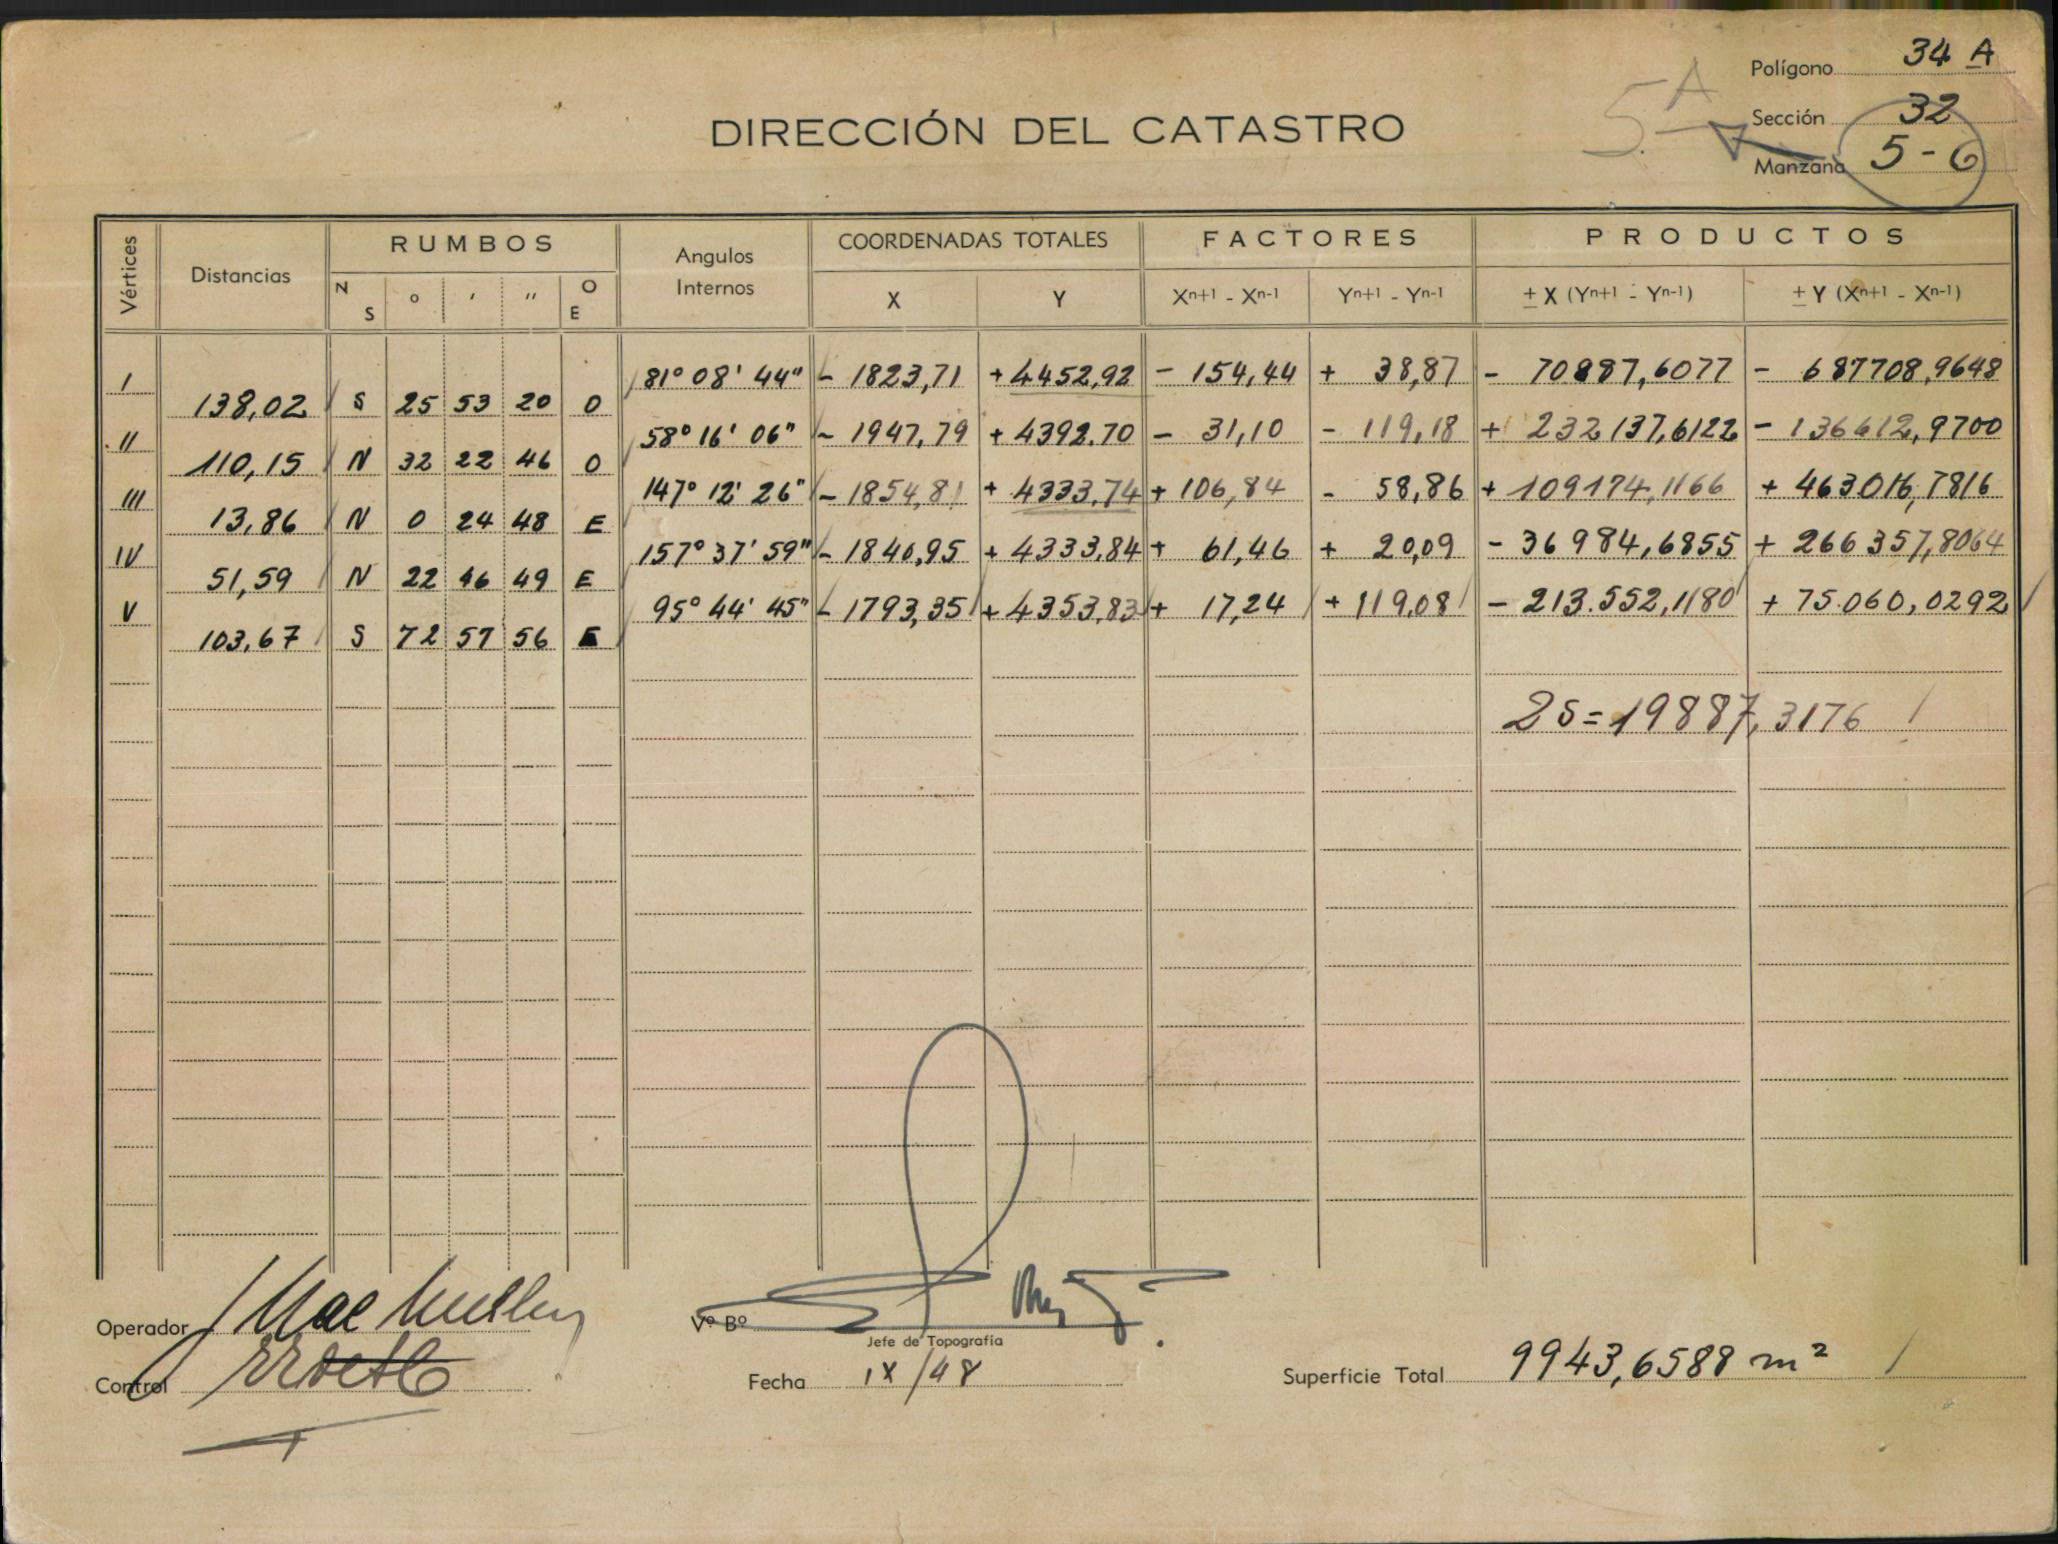 Polígono 34 A
5 A
DIRECCIÓN DEL CATASTRO
Sección 32
Manzana 5-6
Vértices Distancias RUMBOS Angulos Internos COORDENADAS TOTALES FACTORES PRODUCTOS
N S ° ' " O E X Y Xn+1 - Xn-1 Yn+1 - Yn-1 ± X (Yn+1 - Yn-1) ± Y (Xn+1 - Xn-1)
I 81° 08' 44" - 1823,71 + 4452,92 - 154,44 + 38,87 - 70887,6077 - 687708,9648
138,02 S 25 53 20 O
II 58° 16' 06" - 1947,79 + 4392.70 - 31,10 - 119,18 + 232137,6122 - 136612,9700
110,15 N 32 22 46 O
III 147° 12' 26" - 1854,81 + 4333,74 + 106,84 - 58,86 + 109174,1166 + 463016,7816
13,86 N 0 24 48 E
IV 157° 37' 59" - 1840,95 + 4333,84 + 61,46 + 20,09 - 36984,6855 + 266357,8064
51,59 N 22 46 49 E
V 95° 44' 45" - 1793,35 + 4353,83 + 17,24 + 119,08 - 213.552,1180 + 75.060,0292
103,67 S 72 57 56 E
2S = 19887,3176
Operador
Vº Bº
Jefe de Topografía
Control
Fecha IX/48
Superficie Total 9943,6588 m²